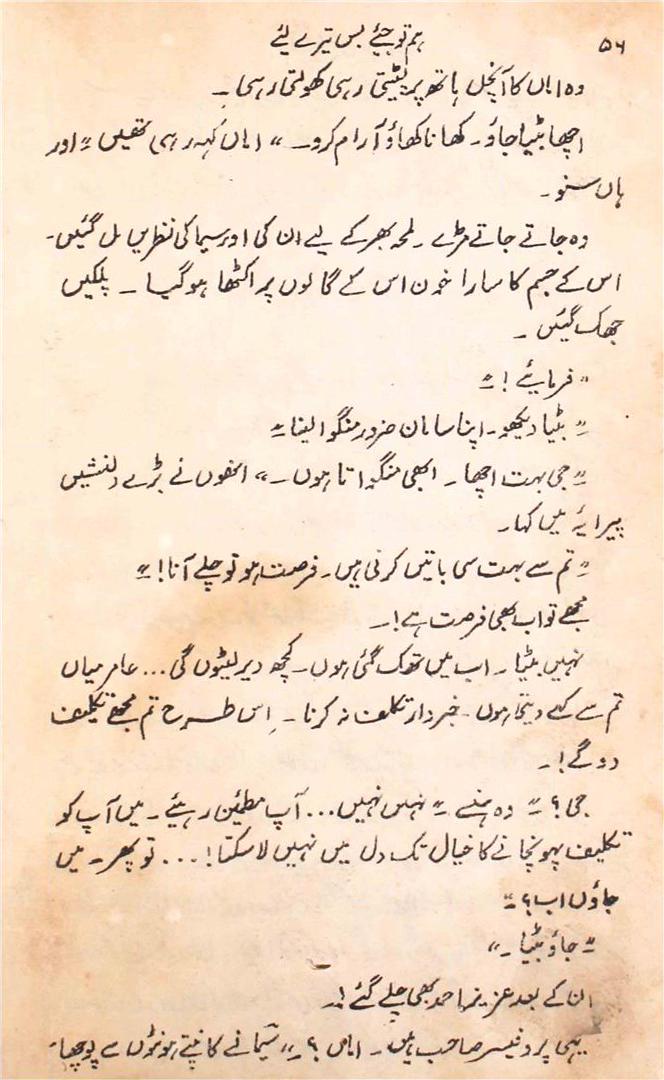 ۵۶
ہم تو جئے بس تیرے لئے
وہ اماں کا آنچل ہاتھ پر لپٹیتی رہی کھولتی رہی۔
اچھا بٹیا جاؤ۔ کھانا کھاؤ آرام کرو۔" اماں کہہ رہی تھیں" اور
ہاں سنو۔
وہ جاتے جاتے مڑے۔ لمحہ بھر کے لیے ان کی اور سیما کی نظریں مل گئیں۔
اس کے جسم کا سارا خون اس کے گالوں پر اکٹھا ہو گیا۔ پلکیں
جھک گئیں۔
"فرمایئے!"
"بٹیا دیکھو۔ اپنا سامان ضرور منگوا لینا"
"جی بہت اچھا۔ ابھی منگواتا ہوں۔" انھوں نے بڑے دلنشیں
پیرائے میں کہا۔
"تم سے بہت سی باتیں کرنی ہیں۔ فرصت ہو تو چلے آنا!"
مجھے تو اب بھی فرصت ہے!۔
نہیں بٹیا۔ اب میں تھک گئی ہوں۔ کچھ دیر لیٹوں گی... عامر میاں
تم سے کہے دیتی ہوں۔ خبردار تکلف نہ کرنا۔ اِس طرح تم مجھے تکلیف
دو گے!۔
جی؟" وہ ہنسے" نہیں نہیں... آپ مطمئن رہیئے۔ میں آپ کو
تکلیف پہونچانے کا خیال تک دل میں نہیں لا سکتا!... تو پھر۔ میں
جاؤں اب؟"
"جاؤ بٹیا۔"
ان کے بعد عزیز احمد بھی چلے گئے!۔
یہی پروفیسر صاحب ہیں۔ اماں؟۔" سیما نے کانپتے ہونٹوں سے پوچھا۔